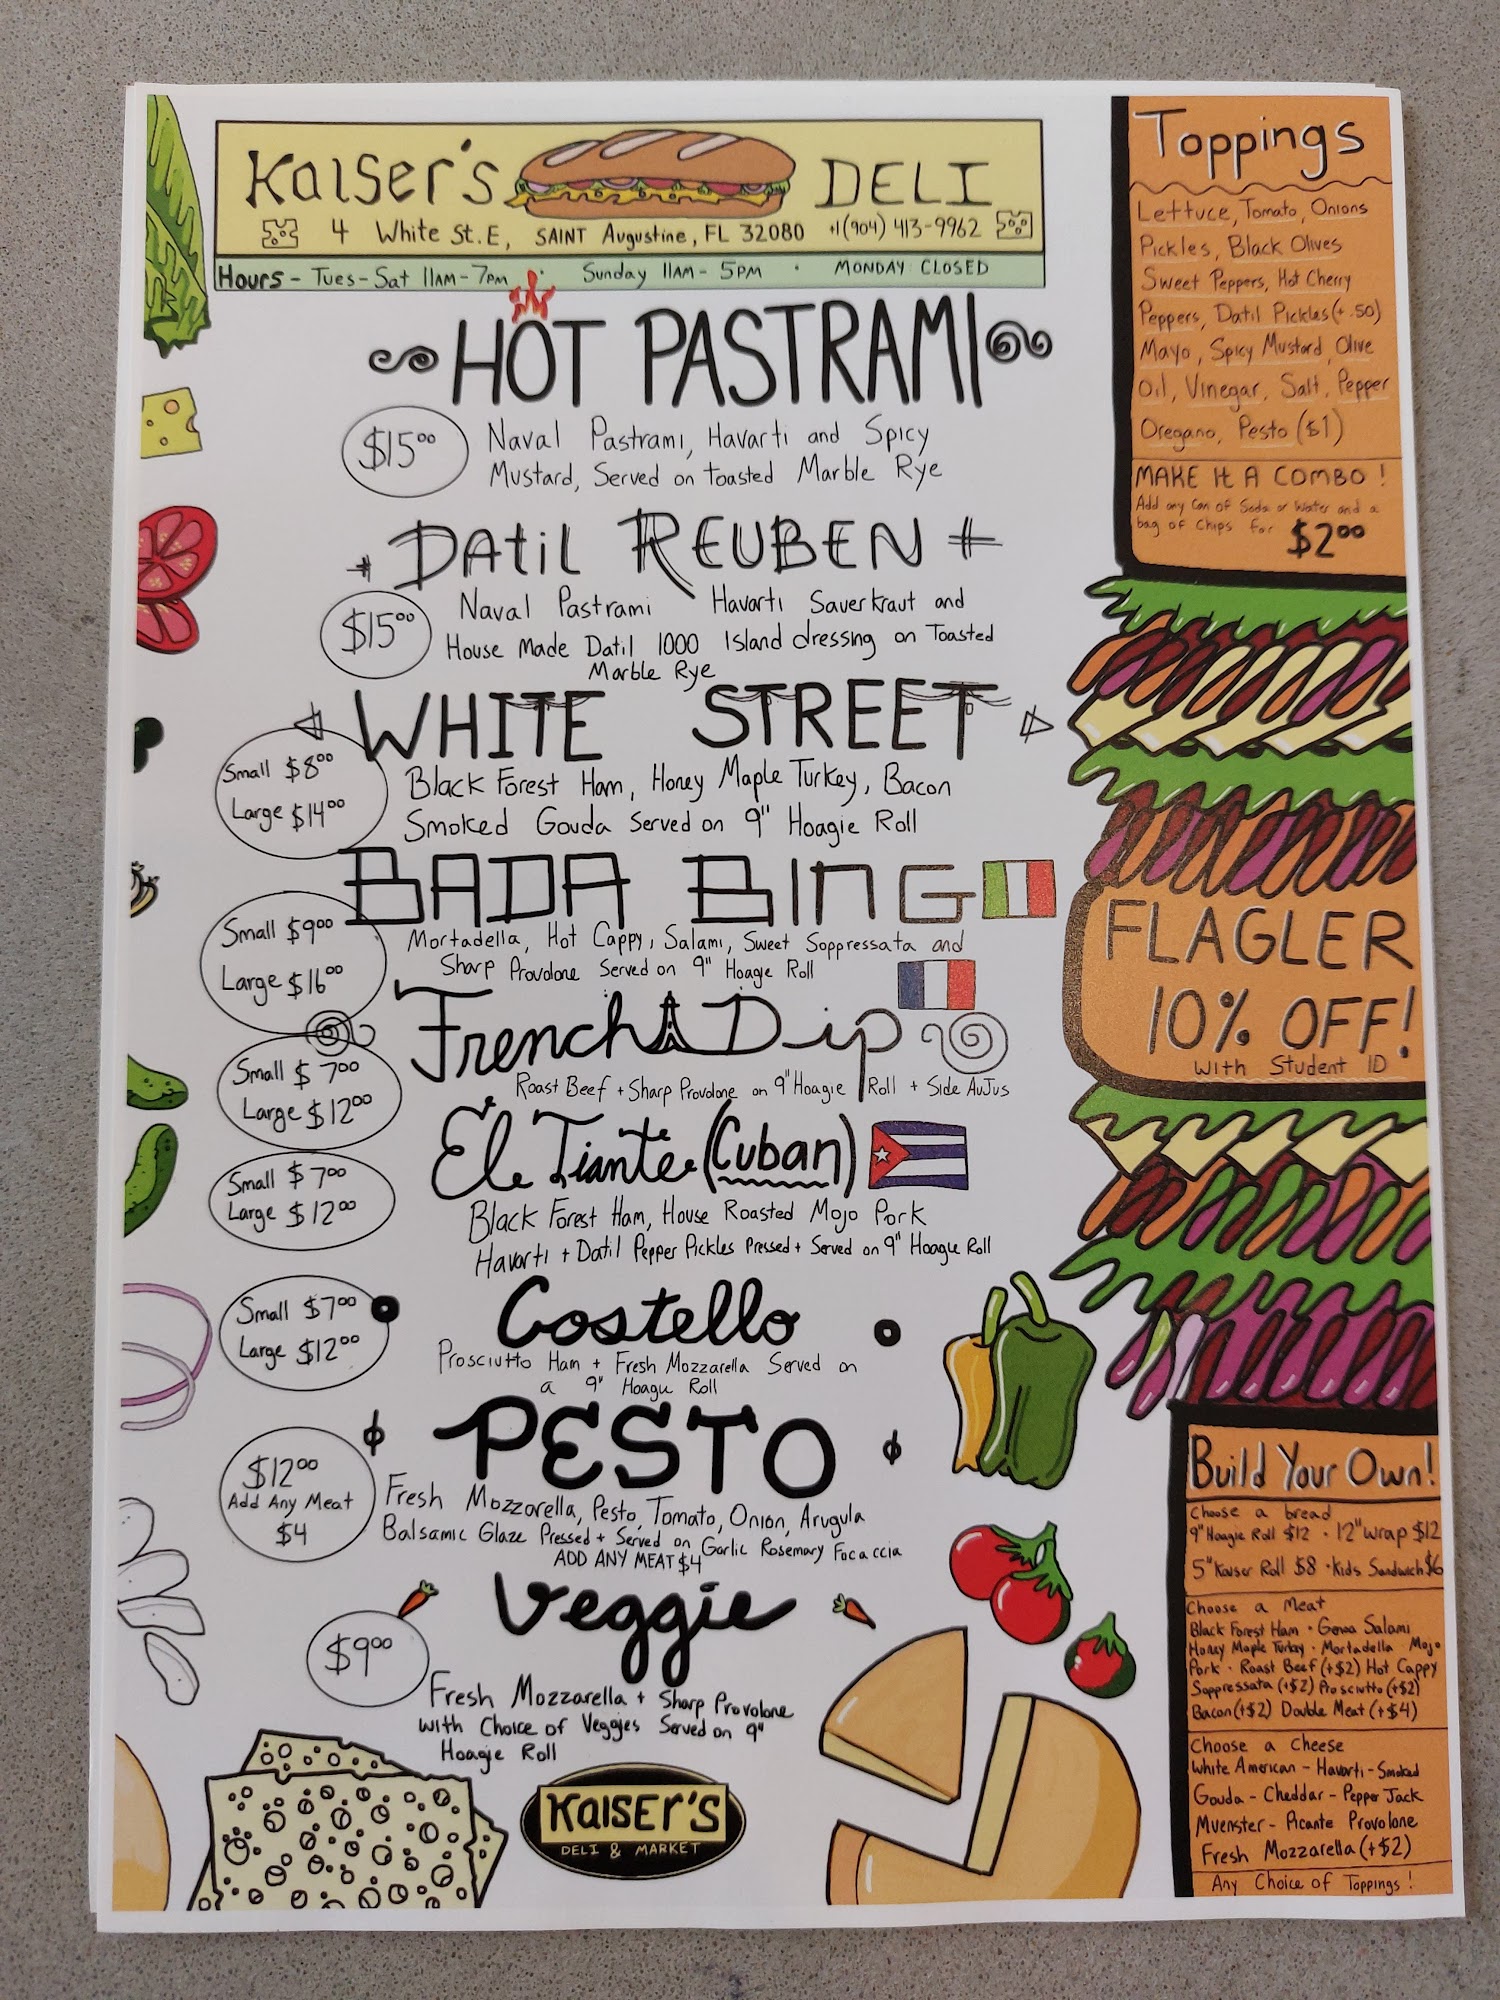 Kaiser's DELI
4 White St. E, SAINT Augustine, FL 32080 +1(904) 413-9962
Hours - Tues - Sat 11AM - 7PM · Sunday 11AM - 5PM · MONDAY CLOSED
HOT PASTRAMI
$15.00
Naval Pastrami, Havarti and Spicy
Mustard, Served on toasted Marble Rye
DAtil REUBEN
$15.00
Naval Pastrami Havarti Sauerkraut and
House Made Datil 1000 Island dressing on Toasted
Marble Rye
WHITE STREET
Small $8.00
Large $14.00
Black Forest Ham, Honey Maple Turkey, Bacon
Smoked Gouda Served on 9" Hoagie Roll
BADA BING
Small $9.00
Large $16.00
Mortadella, Hot Cappy, Salami, Sweet Soppressata and
Sharp Provolone Served on 9" Hoagie Roll
French Dip
Small $7.00
Large $12.00
Roast Beef + Sharp Provolone on 9" Hoagie Roll + Side AuJus
El Tiante (Cuban)
Small $7.00
Large $12.00
Black Forest Ham, House Roasted Mojo Pork
Havarti + Datil Pepper Pickles Pressed + Served on 9" Hoagie Roll
Costello
Small $7.00
Large $12.00
Prosciutto Ham + Fresh Mozzarella Served on
a 9" Hoagie Roll
PESTO
$12.00
Add Any Meat
$4
Fresh Mozzarella, Pesto, Tomato, Onion, Arugula
Balsamic Glaze Pressed + Served on Garlic Rosemary Focaccia
ADD ANY MEAT $4
Veggie
$9.00
Fresh Mozzarella + Sharp Provolone
with Choice of Veggies Served on 9"
Hoagie Roll
KAISER'S
DELI & MARKET
Toppings
Lettuce, Tomato, Onions
Pickles, Black Olives
Sweet Peppers, Hot Cherry
Peppers, Datil Pickles (+ .50)
Mayo, Spicy Mustard, Olive
Oil, Vinegar, Salt, Pepper
Oregano, Pesto ($1)
MAKE It A COMBO!
Add any Can of Soda or Water and a
bag of Chips for $2.00
FLAGLER
10% OFF!
with Student ID
Build Your Own!
Choose a bread
9" Hoagie Roll $12 · 12" Wrap $12
5" Kaiser Roll $8 · Kids Sandwich $6
Choose a Meat
Black Forest Ham · Genoa Salami
Honey Maple Turkey · Mortadella · Mojo
Pork · Roast Beef (+$2) Hot Cappy
Soppressata (+$2) Prosciutto (+$2)
Bacon (+$2) Double Meat (+$4)
Choose a Cheese
White American - Havarti - Smoked
Gouda - Cheddar - Pepper Jack
Muenster - Picante Provolone
Fresh Mozzarella (+$2)
Any Choice of Toppings!